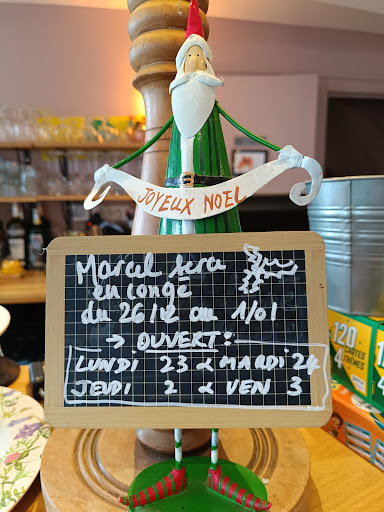 JOYEUX NOEL
Marcel sera
en congé
du 26/12 au 1/01
→ OUVERT:
LUNDI 23 & MARDI 24
JEUDI 2 & VEN 3
120
CARTES
4 THÈMES
120